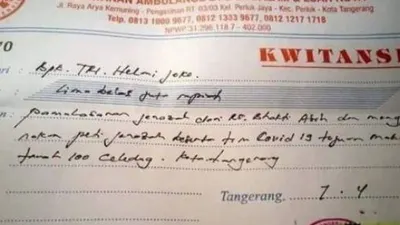 Jl. Raya Arya Kemuning - Pengasinan RT 03/03 Kel. Periuk Jaya - Kec. Periuk - Kota Tangerang
Telp. 0813 1860 9677, 0812 1333 9677, 0812 1217 1718
NPWP.31.296.118.7 - 402.000
70
KWITANSI
ri : Bpk. TRI. Helmi Joko.
: Lima belas juta rupiah
pemulasaran jenazah dari RS. Bhakti Asih dan meng
nakan peti jenazah beserta tim Covid 19 tujuan mak
tanah 100 Ciledug. Kota tangerang
Tangerang, 7 - 4